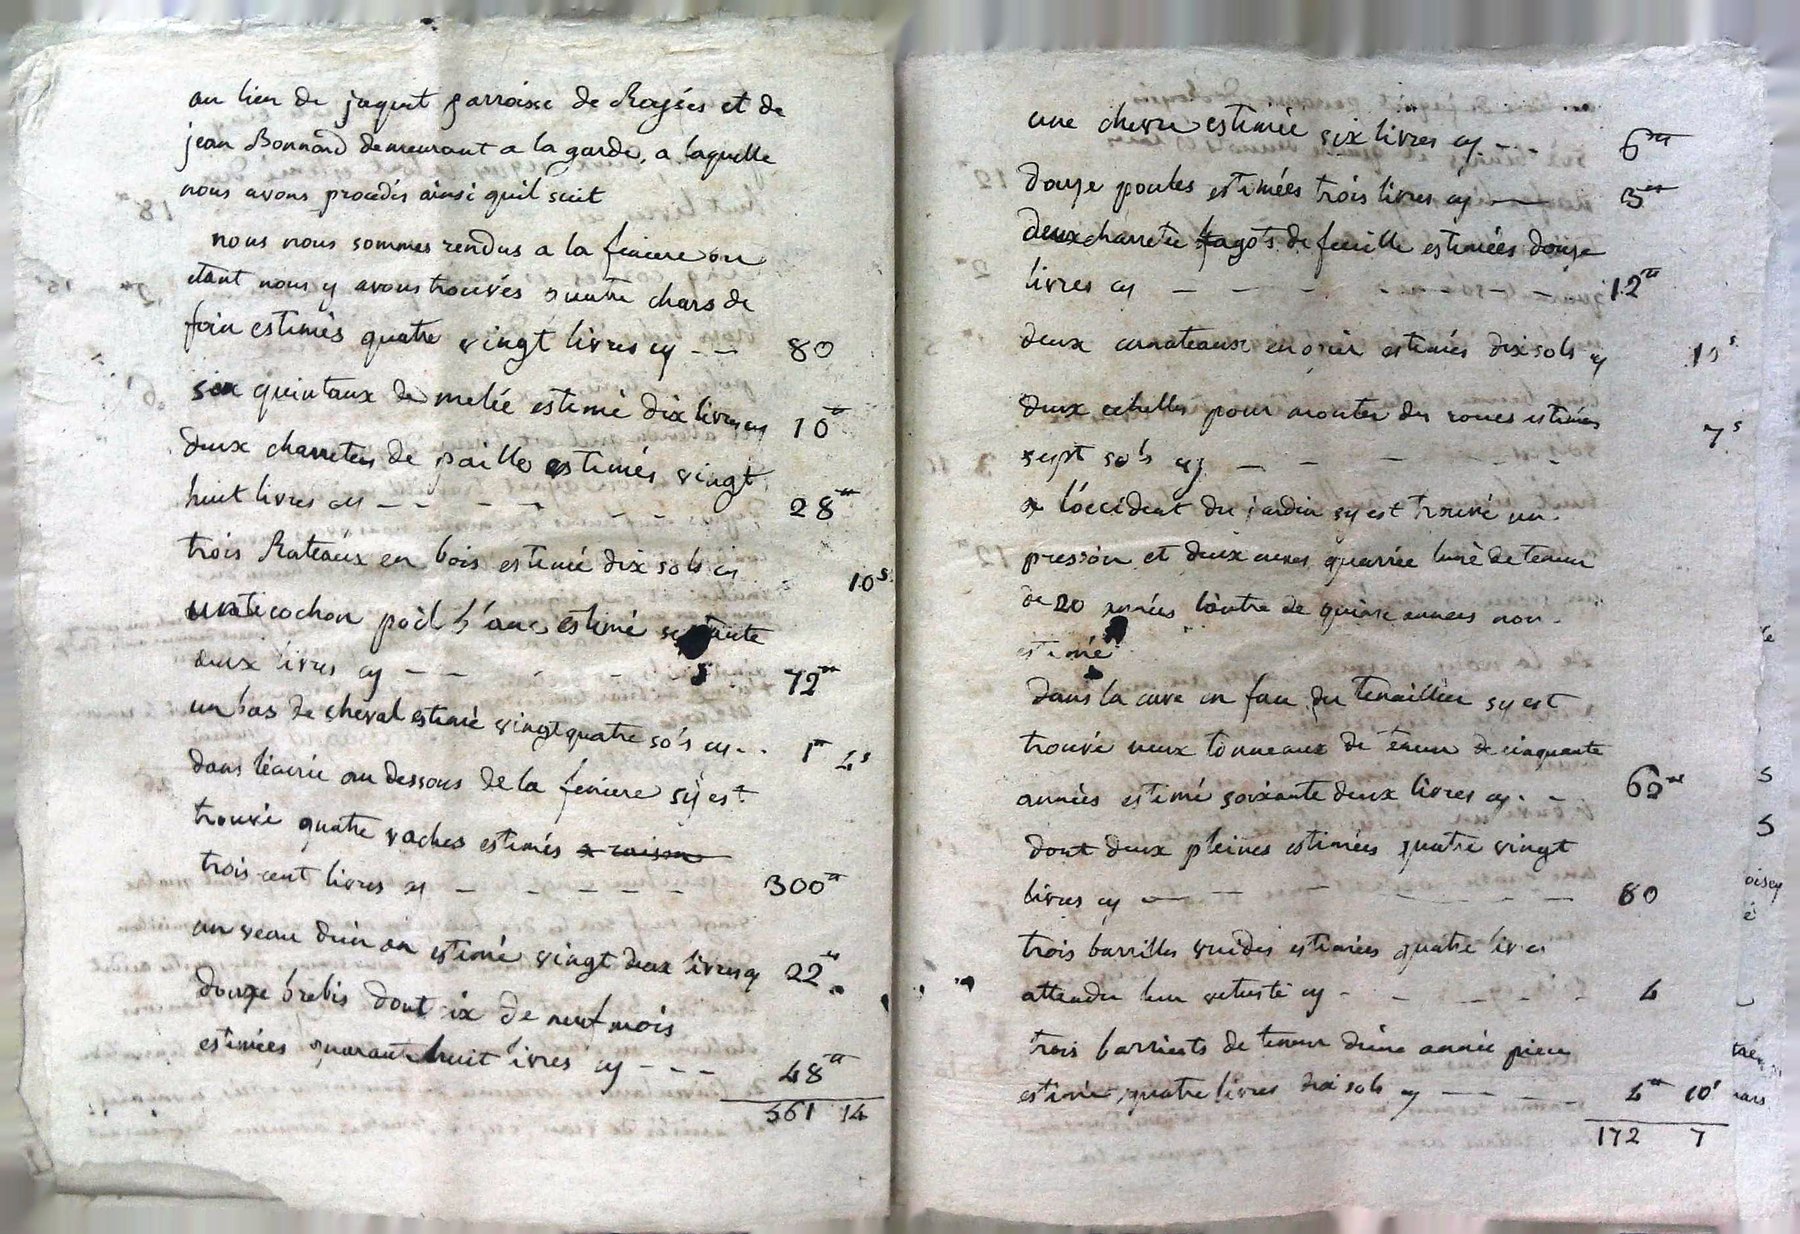 au lieu de jaquet parroisse de Rozées et de
jean Bonnard demeurant a la garde, a laquelle
nous avons procédés ainsi quil suit
nous nous sommes rendus a la feniere ou
etant nous y avons trouvés quatre chars de
foin estimés quatre vingt livres cy -- 80
six quintaux de melée estimé dix livres cy 10tt
deux charretées de paille estimés vingt
huit livres cy - - - - - - 28tt
trois Rateaux en bois estimé dix sols cy 10s
un cochon poil blanc estimé septante
deux livres cy - - - - 72tt
un bas de cheval estimé vingt quatre sols cy - - 1tt 4s
dans lécurie au dessous de la feniere sy est
trouvé quatre vaches estimés a raison
trois cent livres cy - - - - - 300tt
un veau dun an estimé vingt deux livres cy 22tt
douze brebis dont six de neuf mois
estimées quarante huit livres cy - - - 48tt
561 14
une chevre estimée six livres cy - - 6tt
douze poules estimées trois livres cy — 3tt
deux charretée fagots de feuille estimées douze
livres cy - - - - - - - 12tt
deux en osier estimés dix sols cy 10s
deux echelles pour monter des roues estimées 7s
sept sols cy - - - - -
a l'occident du jardin sy est trouvé un
pressoir et deux cuves quarrée lune de teneur
de 20 années lautre de quinze annees non
estimé
dans la cave en fau du tenaillier sy est
trouvé neux tonneaux de teneur de cinquante
années estimé soixante deux livres cy - - 62tt
dont deux pleines estimées quatre vingt
livres cy — - - - - - 80
trois barrilles vuides estimées quatre livres
attendu leur vetusté cy - - - - - 4
trois barriets de teneur dune année piece
estimé quatre livres dix sols cy - - - - 4tt 10s
172 7